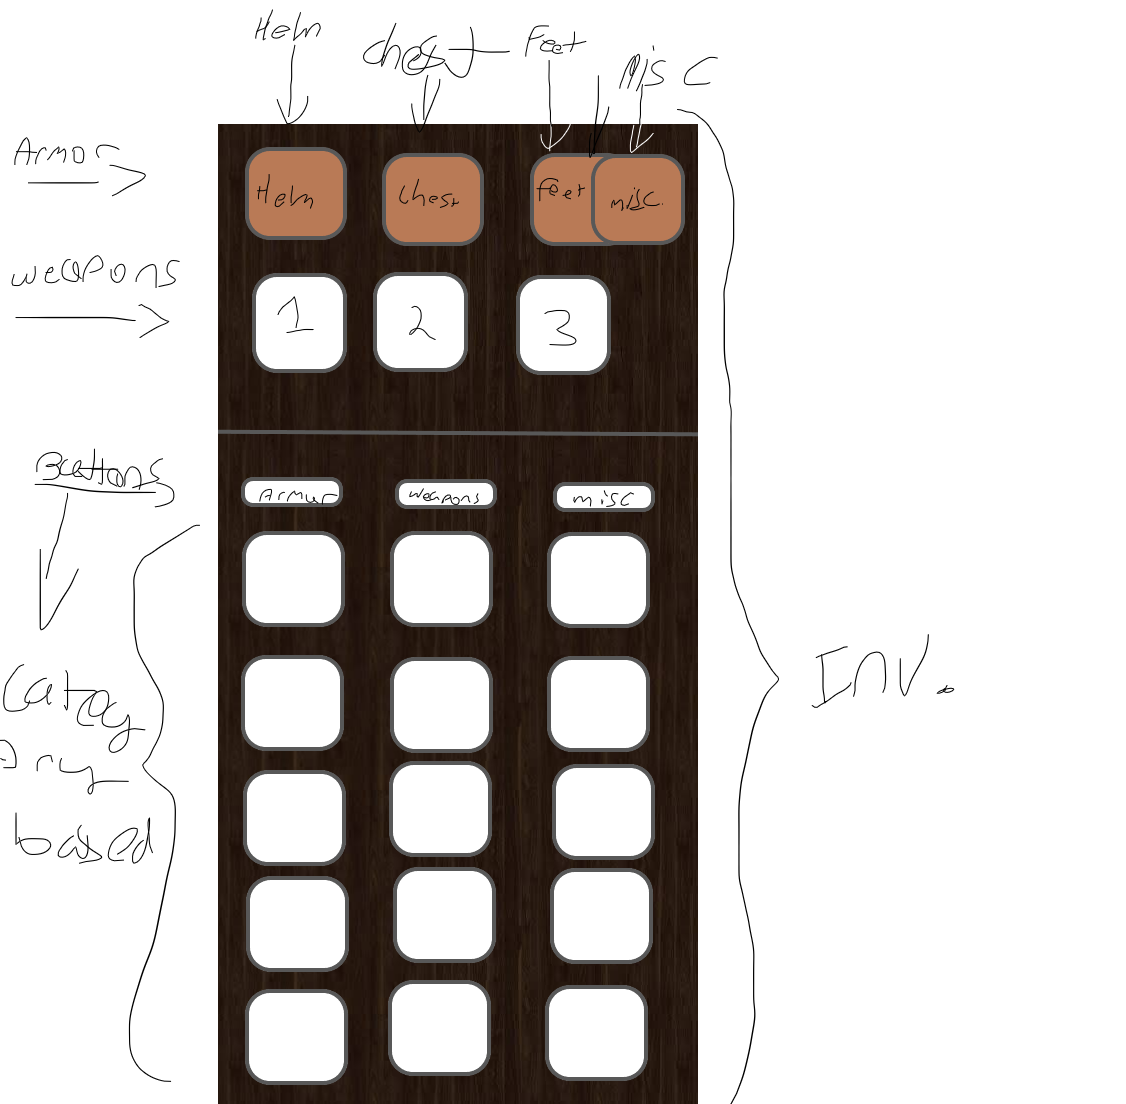 Helm
chest
Feet
Misc
Armor
Helm
Chest
feet
misc.
weapons
1
2
3
Buttons
Armur
Weapons
misc
Catagory
based
INV.